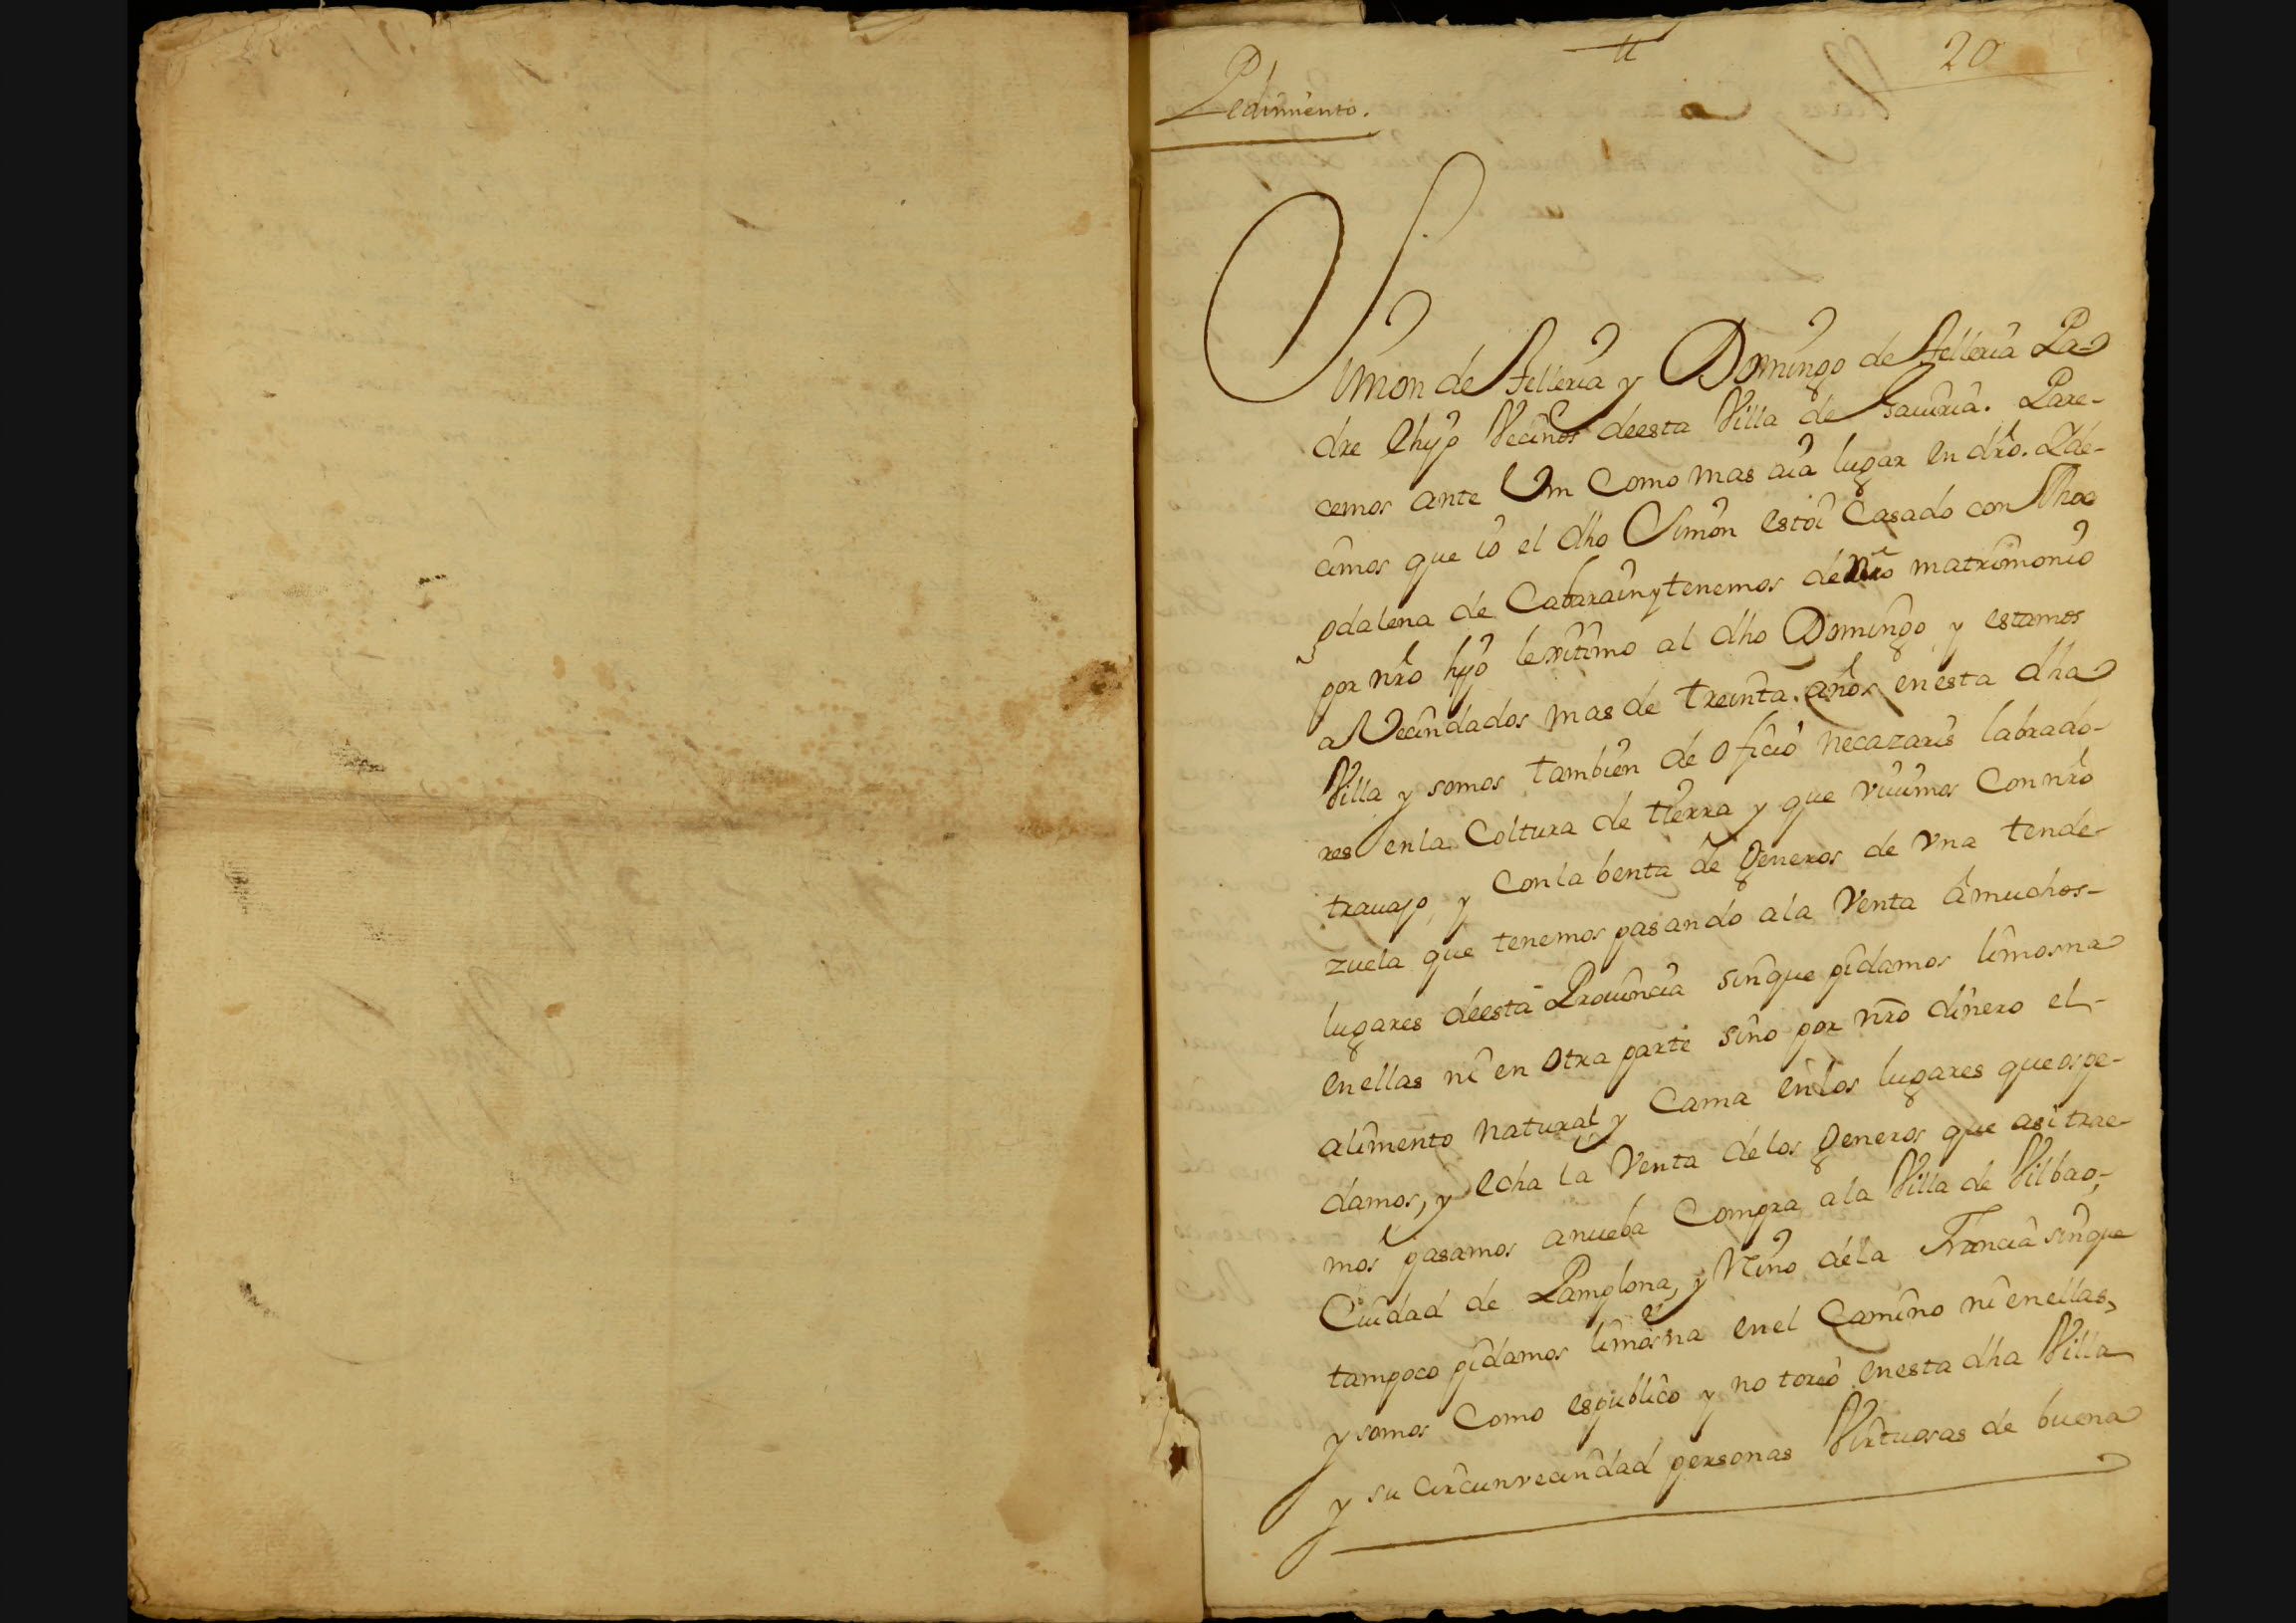 20
Pedimiento.
Simon de Telleria y Domingo de Telleria Pa-
dre e hijo Vecinos deesta Villa de Gauiria. Pare-
cemos ante Vm Como mas aia lugar en dro. Ede-
cimos que io el dho Simon estoi Casado con Ma
gdalena de Cabarain y tenemos de nro matrimonio
por nro hijo lexitimo al dho Domingo y estamos
aVecindados mas de treinta. años enesta dha
Villa y somos tambien de oficio necazaris labrado-
res enla Coltura de tierra y que viuimos Con nro
trauajo, y Conla benta de generos de vna tende-
zuela que tenemos pasando ala Venta a muchos-
lugares deesta Prouincia sinque pidamos limosna
enellas ni en otra parte sino por nro dinero el-
alimento natural y Cama en los lugares que ospe-
damos, y echa la Venta delos generos que asi trae-
mos pasamos anueba Compra ala Villa de Vilbao,
Ciudad de Pamplona, y Reino dela Francia sinque
tampoco pidamos limosna enel Camino ni enellas,
y somos Como espublico y notorio enesta dha Villa
y su circunvecindad personas Virtuosas de buena